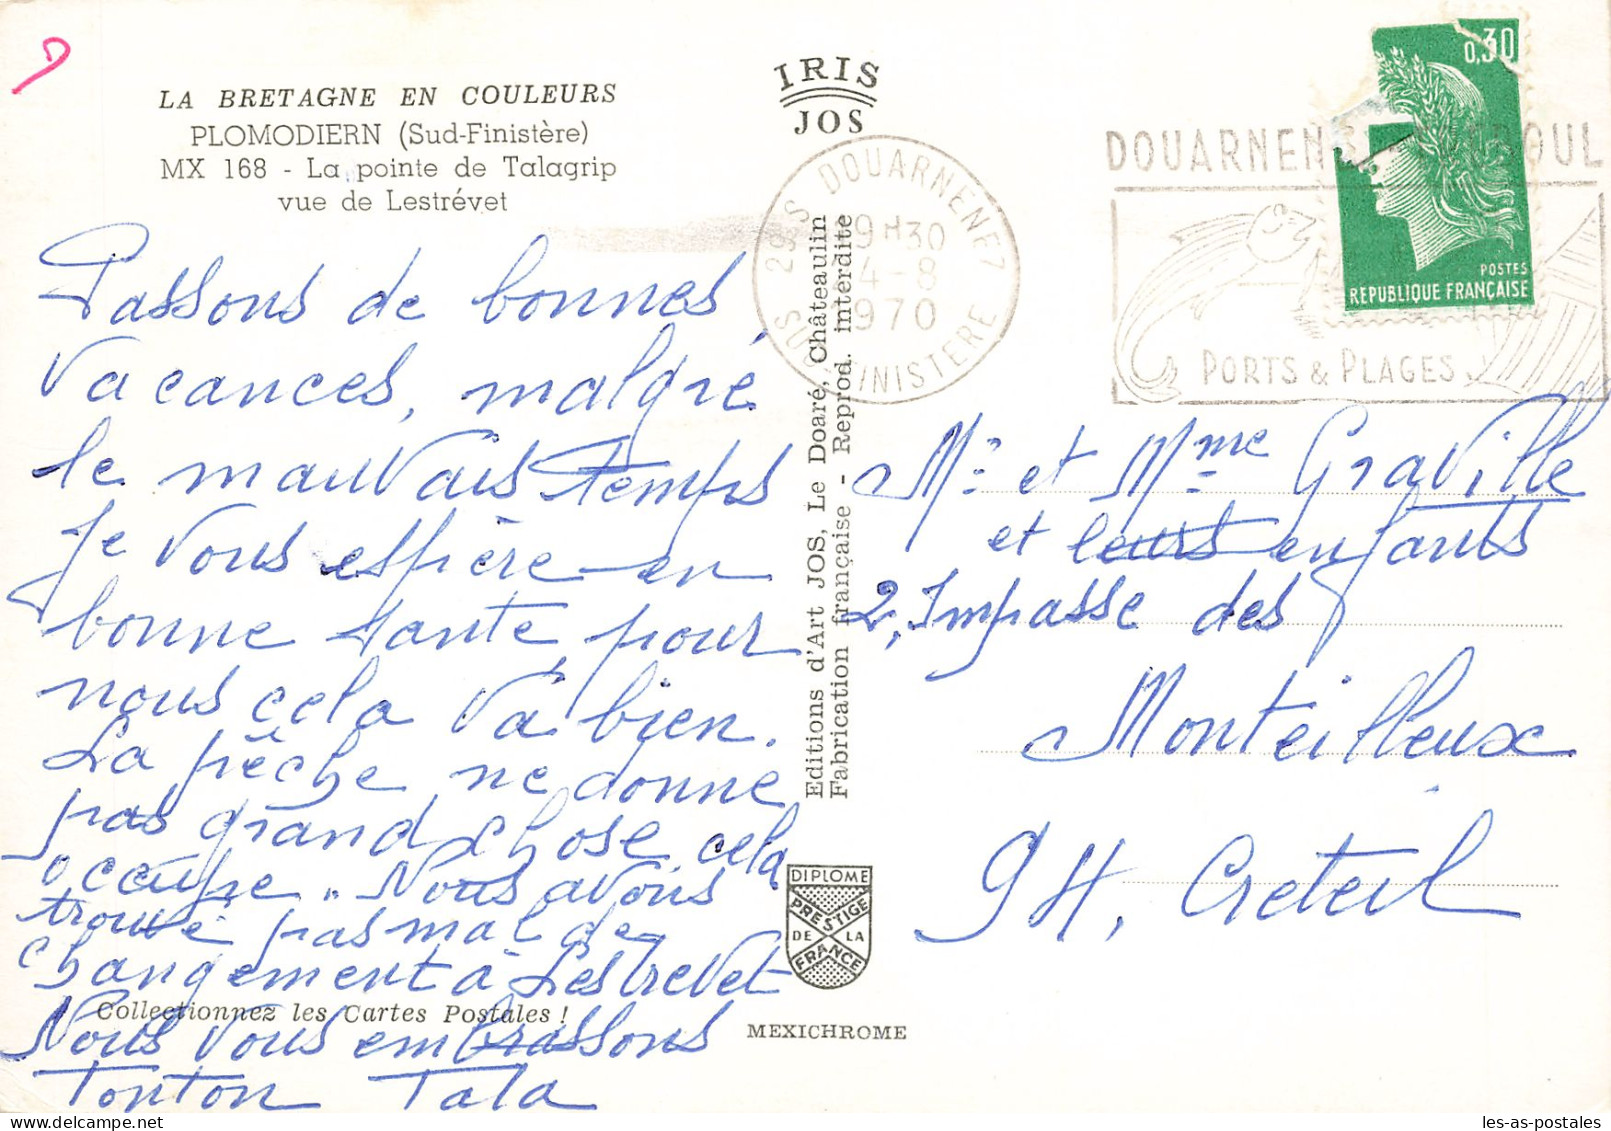 LA BRETAGNE EN COULEURS
PLOMODIERN (Sud-Finistère)
MX 168 - La pointe de Talagrip
vue de Lestrévet
IRIS
JOS
29 S DOUARNENEZ
19H30
4-8
1970
SUD FINISTERE
DOUARNEN
PORTS & PLAGES
0,30
POSTES
REPUBLIQUE FRANÇAISE
Passons de bonnes
vacances, malgré
le mauvais temps
Je vous espère en
bonne santé pour
nous cela va bien.
La pêche ne donne
pas grand chose, cela
occupe. Nous avons
trouvé pas mal de
changement à Lestrevet
Nous vous embrassons
Tonton Tata
Collectionnez les Cartes Postales !
Editions d'Art JOS, Le Doaré, Châteaulin
Fabrication française - Reprod. interdite
DIPLOME
PRESTIGE
DE LA
FRANCE
MEXICHROME
Mr et Mme Graville
et leurs enfants
2, Impasse des
Monteilleux
94, Creteil
les-as-postales